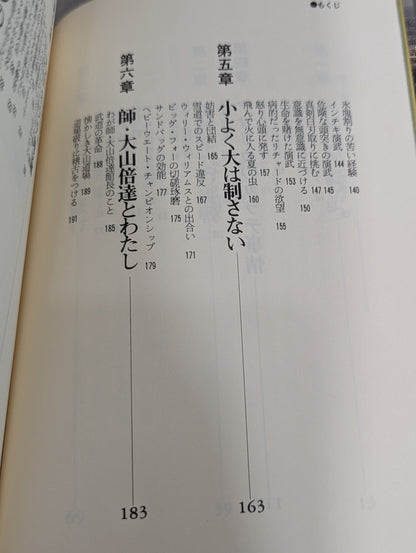 ●もくじ
氷塊割りの苦い経験 140
インチキ演武 144
危険な頭突きの演武 145
真剣白刃取りに挑む 147
意識を無意識に近づける 150
生命を賭けた演武 153
病的だったリチャードの欲望 155
怒り心頭に発す 157
飛んで火に入る夏の虫 160
第五章 小よく大は制さない 163
妨害と団結 165
雪道でのスピード違反 167
ウィリー・ウィリアムスとの出合い 171
ビッグ・フォーの切磋琢磨 175
サンドバッグの効能 177
ヘビーウエート・チャンピオンシップ 179
第六章 師・大山倍達とわたし 183
わが師・大山倍達館長のこと 185
武道の革命 188
懐かしき大山道場 189
道場破りに稽古をつける 191